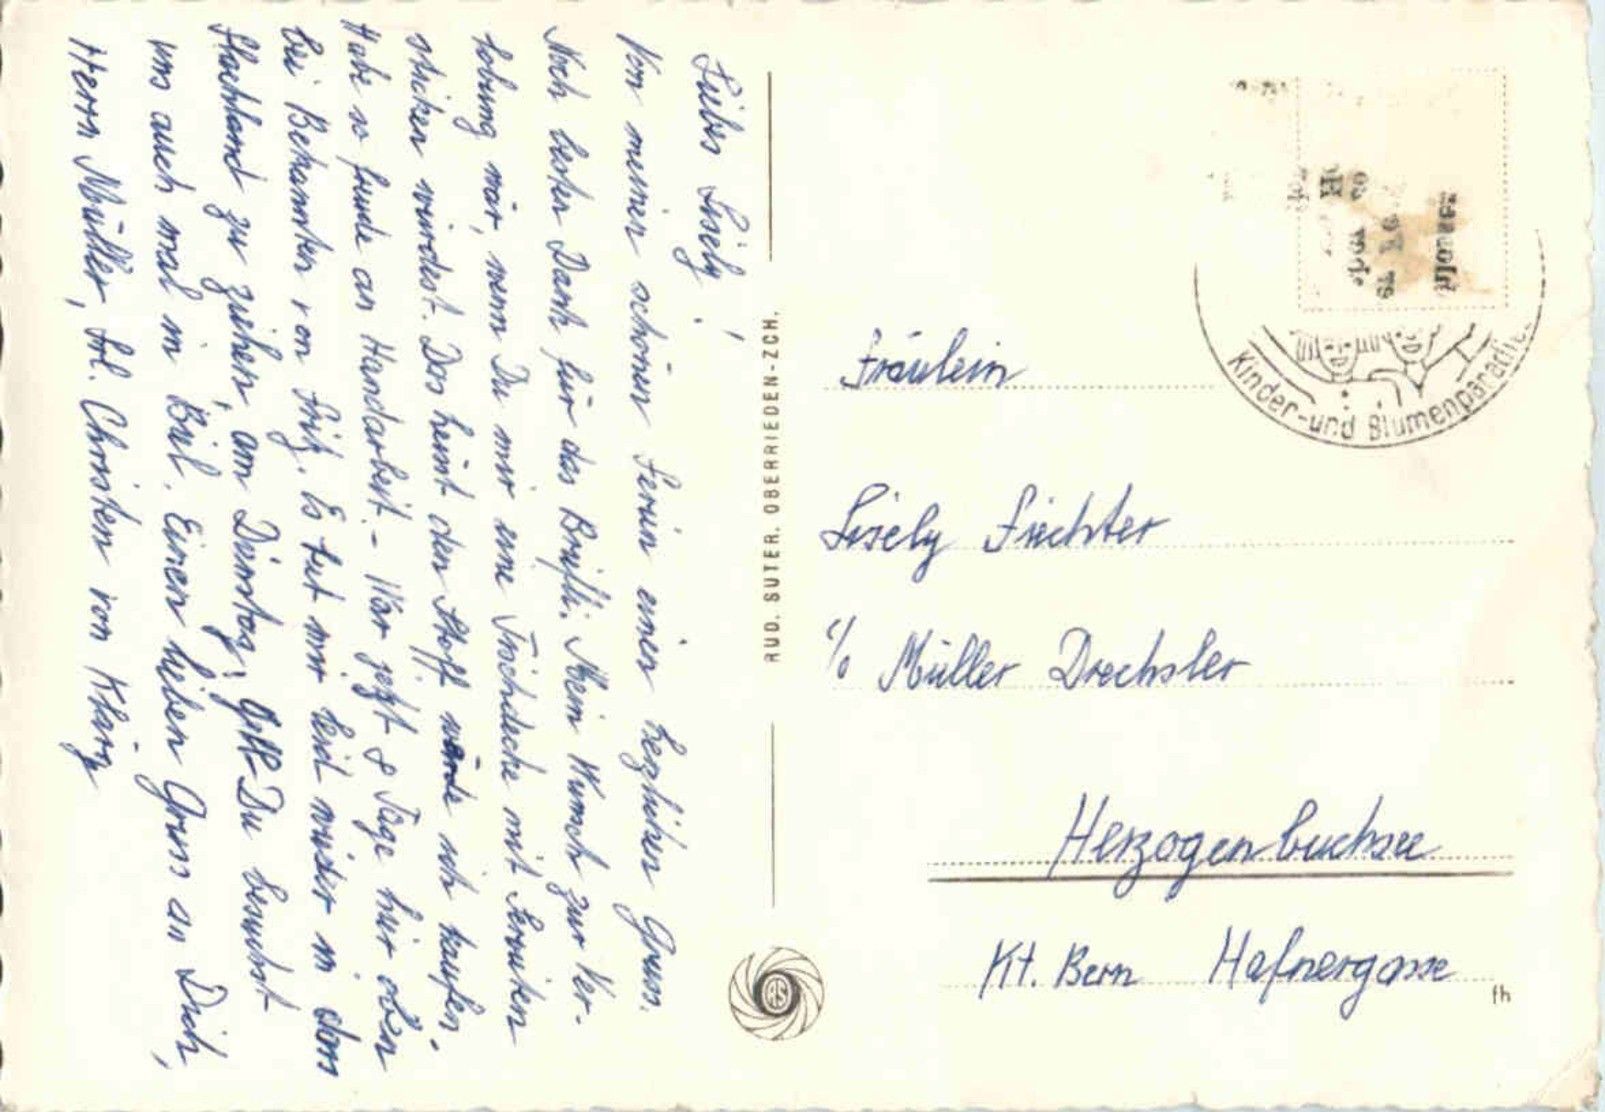 Liebes Lisely!
Von meinen schönen Ferien einen herzlichen Gruss.
Noch besten Dank für das Briefli. Mein Wunsch zur Ver-
lobung wär, wenn Du mir eine Tischdecke mit Servietten
sticken würdest. Das heisst den Stoff würde ich kaufen.
Habe so Freude an Handarbeit. - War jetzt 8 Tage hier oben
bei Bekannten von Fritz. Es tut mir leid wieder in das
Flachland zu ziehen, am Dienstag. Gell Du besuchst
uns auch mal in Biel. Einen lieben Gruss an Dich,
Herrn Müller, Frl. Christen von Kläry
RUD. SUTER, OBERRIEDEN-ZCH.
RS
Kinder- und Blumenparadies
Fräulein
Lisely Füchter
c/o Müller Drechsler
Herzogenbuchsee
Kt. Bern Hafnergasse
fh